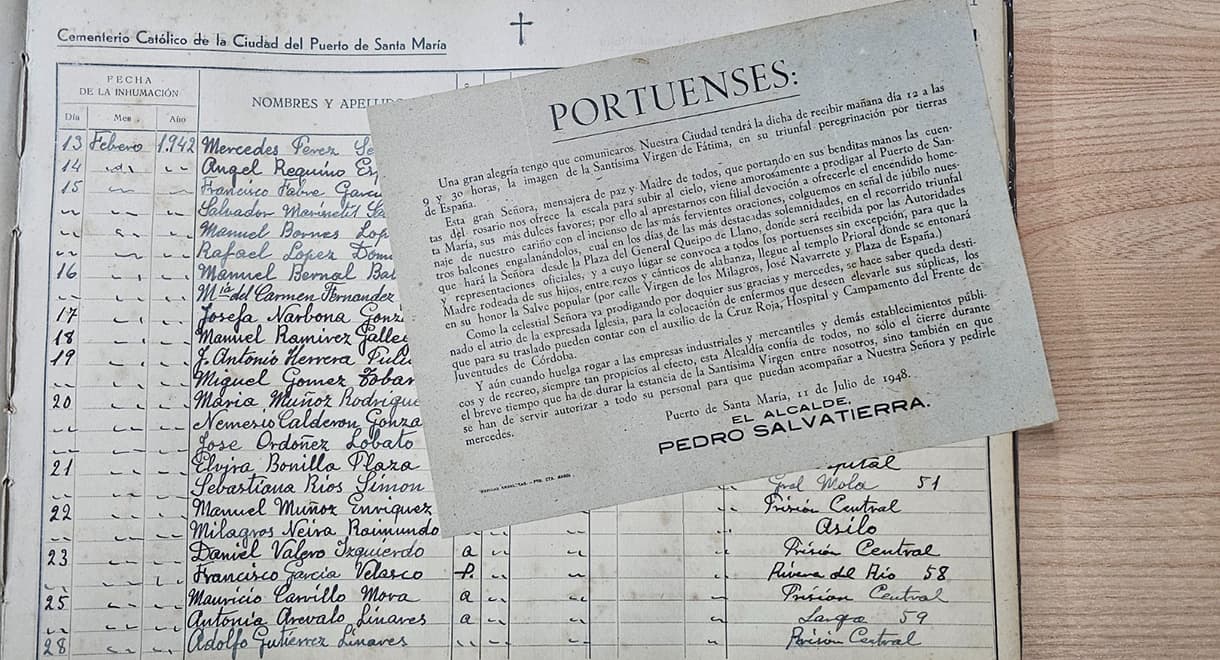 Cementerio Católico de la Ciudad del Puerto de Santa María
FECHA
DE LA INHUMACIÓN
Día Mes Año
NOMBRES Y
13 Febrero 1942 Mercedes Perez
14 Angel Reguino
15 Francisco
Salvador
Manuel Bornes
Rafael Lopez
16 Manuel Bernal
Mª del Carmen Fernandez
17 Josefa Narbona
18 Manuel Ramirez
19 J. Antonio Herrera
Miguel Gomez
20 Maria Muñoz
Nemesio Calderon
Jose Ordoñez Lobato
21 Elvira Bonilla Plaza
Sebastiana Rios Simon Gral Mola 51
22 Manuel Muñoz Enriquez Prisión Central
Milagros Neira Raimundo Asilo
23 Daniel Valero Izquierdo a Prisión Central
Francisco Garcia Velasco P. Rivera del Rio 58
25 Mauricio Carrillo Mora a Prision Central
Antonia Arevalo Linares a Larga 59
28 Adolfo Gutiérrez Linares Prisión Central
PORTUENSES:
Una gran alegría tengo que comunicaros Nuestra Ciudad tendrá la dicha de recibir mañana día 12 a las
9 y 30 horas, la imagen de la Santísima Virgen de Fátima, en su triunfal peregrinación por tierras
de España.
Esta gran Señora, mensajera de paz y Madre de todos, que portando en sus benditas manos las cuen-
tas del rosario nos ofrece la escala para subir al cielo, viene amorosamente a prodigar al Puerto de San-
ta María, sus más dulces favores; por ello al aprestarnos con filial devoción a ofrecerle el encendido home-
naje de nuestro cariño con el incienso de las más fervientes oraciones, colguemos en señal de júbilo nues-
tros balcones engalanándolos, cual en los días de las más destacadas solemnidades, en el recorrido triunfal
que hará la Señora desde la Plaza del General Queipo de Llano, donde será recibida por las Autoridades
y representaciones oficiales, y a cuyo lugar se convoca a todos los portuenses sin excepción; para que la
Madre rodeada de sus hijos, entre rezos y cánticos de alabanza, llegue al templo Prioral donde se entonará
en su honor la Salve popular (por calle Virgen de los Milagros, José Navarrete y Plaza de España.)
Como la celestial Señora va prodigando por doquier sus gracias y mercedes, se hace saber queda desti-
nado el atrio de la expresada Iglesia, para la colocación de enfermos que deseen elevarle sus súplicas, los
que para su traslado pueden contar con el auxilio de la Cruz Roja, Hospital y Campamento del Frente de
Juventudes de Córdoba.
Y aún cuando huelga rogar a las empresas industriales y mercantiles y demás establecimientos públi-
cos y de recreo, siempre tan propicios al efecto, esta Alcaldía confía de todos, no sólo el cierre durante
el breve tiempo que ha de durar la estancia de la Santísima Virgen entre nosotros, sino también en que
se han de servir autorizar a todo su personal para que puedan acompañar a Nuestra Señora y pedirle
mercedes.
Puerto de Santa María, 11 de Julio de 1948.
EL ALCALDE,
PEDRO SALVATIERRA.